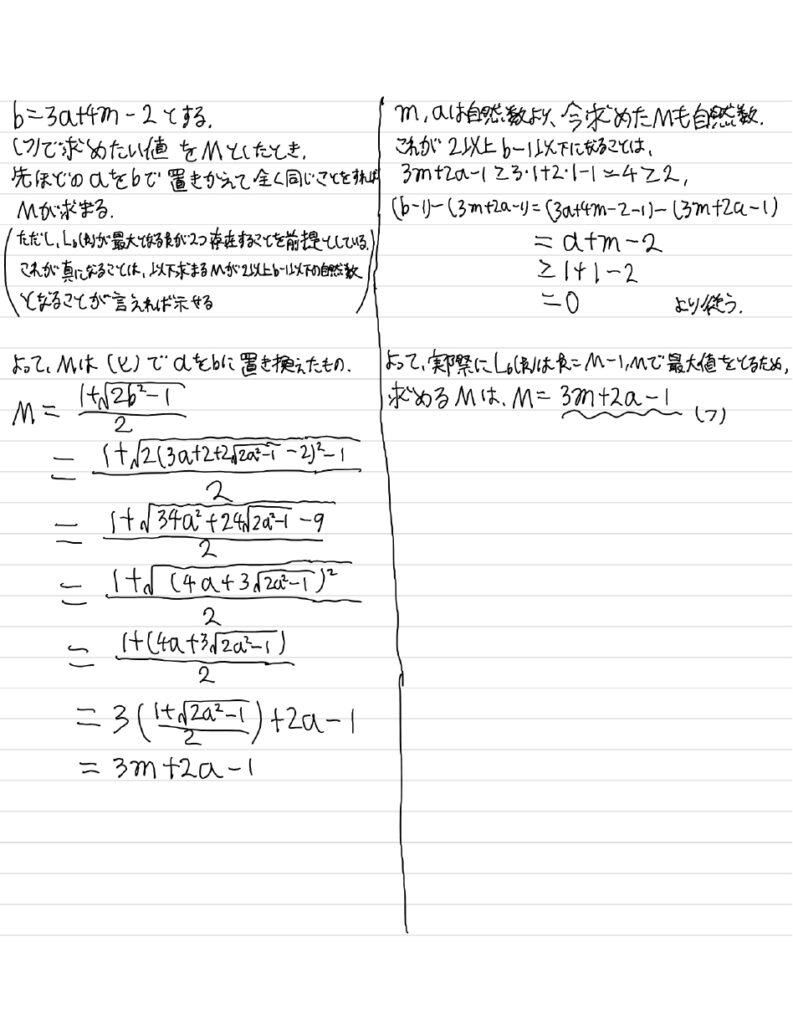 b=3a+4m-2とする.
(フ)で求めたい値をMとしたとき,
先ほどのaをbで置きかえて全く同じことをすれば
Mが求まる.
(ただし, L_b(k)が最大となるkが2つ存在することを前提としている.
これが真になることは, 以下求まるMが2以上b-1以下の自然数
となることが言えれば示せる)
よって, Mは(ヒ)でaをbに置き換えたもの.
M = (1+√(2b²-1))/2
= (1+√(2(3a+2+2√(2a²-1)-2)²-1))/2
= (1+√(34a²+24√(2a²-1)-9))/2
= (1+√((4a+3√(2a²-1))²))/2
= (1+(4a+3√(2a²-1)))/2
= 3((1+√(2a²-1))/2)+2a-1
= 3m+2a-1
m, aは自然数より, 今求めたMも自然数.
これが2以上b-1以下になることは,
3m+2a-1≥3・1+2・1-1=4≥2,
(b-1)-(3m+2a-1)=(3a+4m-2-1)-(3m+2a-1)
= a+m-2
≥ 1+1-2
= 0 より従う.
よって, 実際にL_b(k)はk=M-1, Mで最大値をとるため,
求めるMは, M=3m+2a-1 (フ)